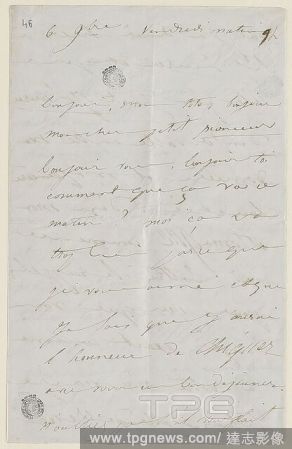 48
6 9bre vendredi matin 9h
bonjour, mon Toto, bonjour
mon cher petit
bonjour vous, bonjour toi
comment que ça va ce
matin? moi ça va
très bien parce que
je vous aime et que
je sais que j'aurai
l'honneur de
avec vous ce
TPG
www.tpgnews.com / 達志影像